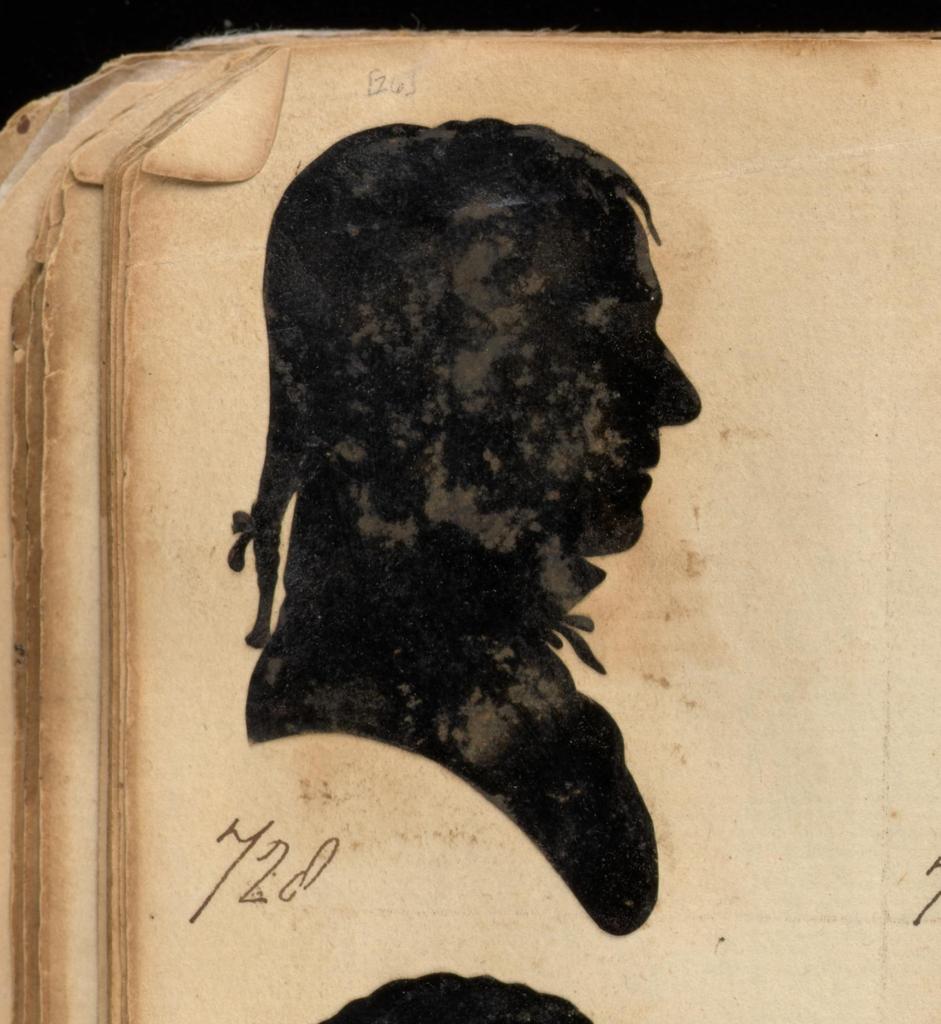 [26]
728